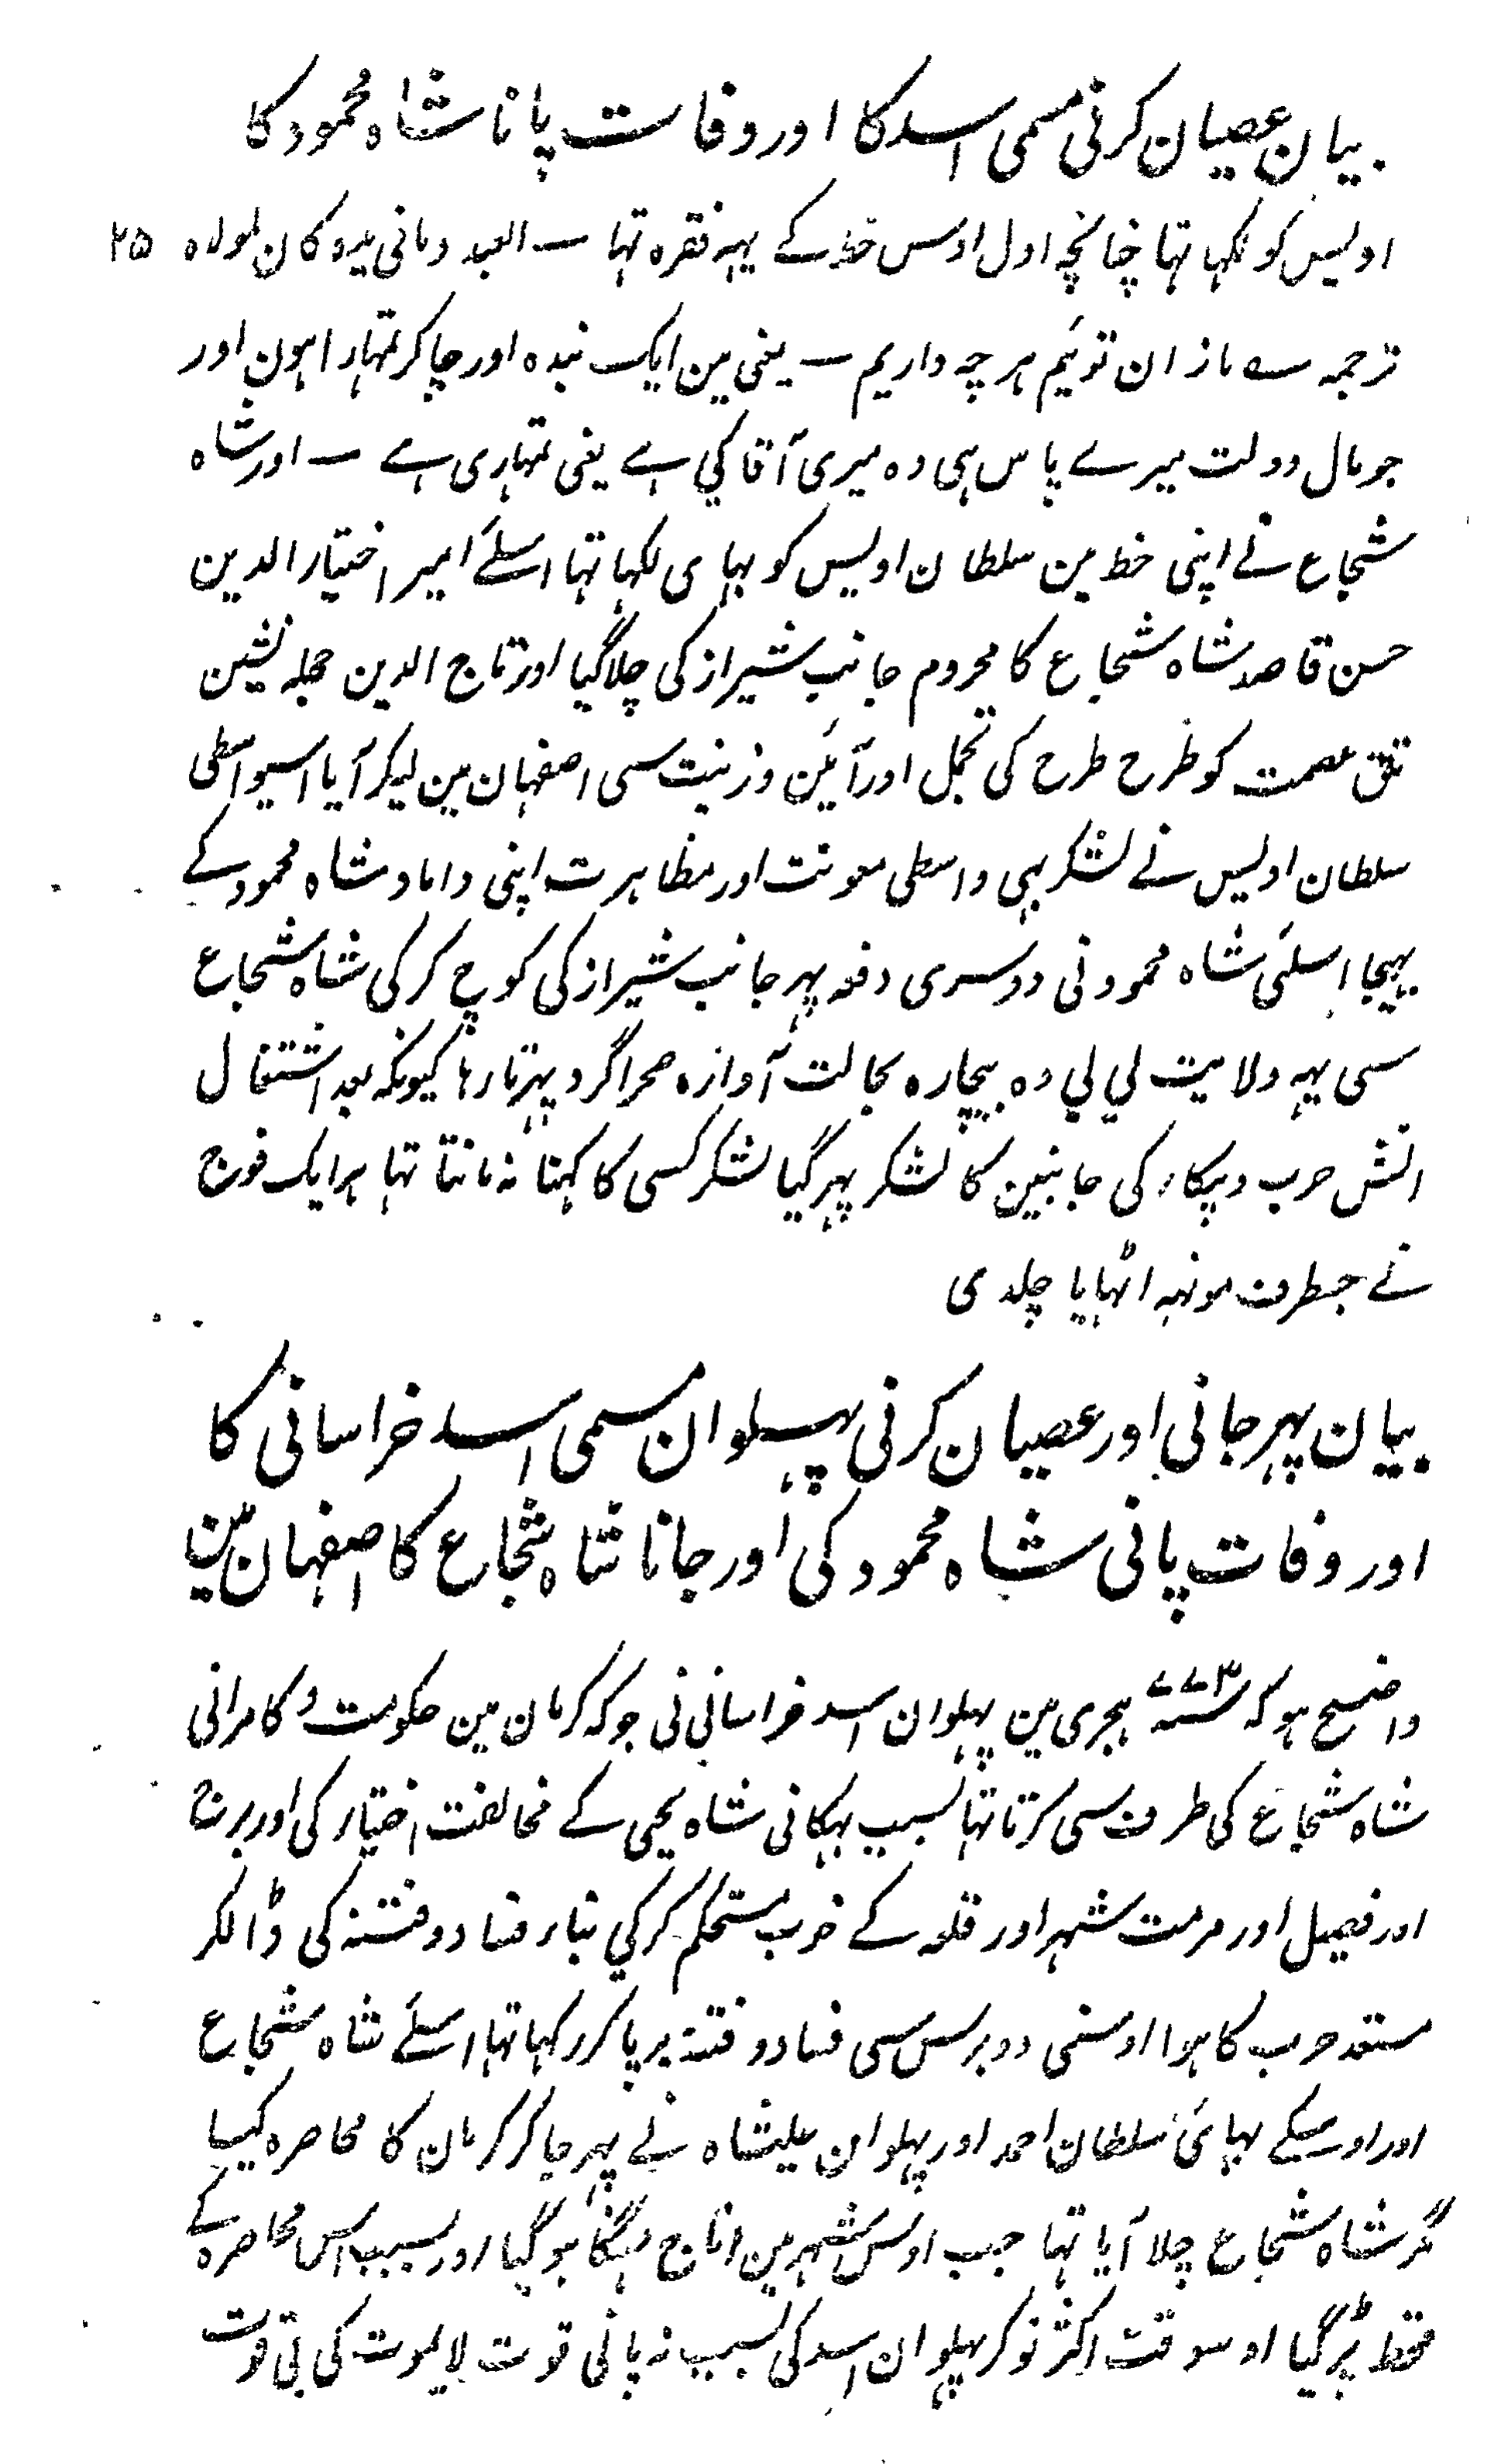 بیان عصیان کرنی مسمی اسد کا اور وفات پانا شاہ محمود کا
اویس کو لکہا تہا چنانچہ اول اوس خط کے یہہ فقرہ تہا ــ العبد ومافی یدہ کان لمولاہ ۲۵
ترجمہ ــہ ما زان توئیم ہر چہ داریم ــ یعنی مین ایک بندہ اور چاکر تمہارا ہون اور
جو مال و دولت میرے پاس ہی وہ میری آقا کي ہے یعنی تمہاری ہے ــ اور شاہ
شجاع نے اپنی خط مین سلطان اویس کو بہای لکہا تہا اسلئے امیر اختیار الدین
حسن قاصد شاہ شجاع کا محروم جانب شیراز کی چلا گیا اور تاج الدین حجلہ نشین
تتق عصمت کو طرح طرح کی تجمل اور آئین و زینت سی اصفہان مین لیکر آیا اسیواسطی
سلطان اویس نے لشکر بہی واسطی معونت اور مظاہرت اپنی داماد شاہ محمود کے
بہیجا اسلئی شاہ محمود نی دوسری دفعہ پہر جانب شیراز کی کوچ کر کی شاہ شجاع
سی یہہ ولایت لي لي وہ بیچارہ بحالت آوازہ صحرا گرد پہرتا رہا کیونکہ بعد اشتغال
اتش حرب و پیکار کی جانبین کا لشکر پہر گیا لشکر کسی کا کہنا نہ مانتا تہا ہر ایک فوج
نے جسطرف مونہہ اٹہایا چلدی
بیان پہر جانی اور عصیان کرنی پہلوان مسمی اسد خراسانی کا
اور وفات پانی شاہ محمود کی اور جانا شاہ شجاع کا اصفہان مین
واضح ہو کہ سنہ ۷۷۳ ہجری مین پہلوان اسد خراسانی نی جو کہ کرمان مین حکومت و کامرانی
شاہ شجاع کی طرف سی کرتا تہا بسبب بہکانی شاہ یحی کے مخالفت اختیار کی اور برج
اور فصیل اور مرمت شہر اور قلعہ کے خوب مستحکم کر کي بناء فساد و فتنہ کی ڈالکر
مستعد حرب کا ہوا اوسنی دو برس سی فساد و فتنہ برپا کر رکہا تہا اسلئے شاہ شجاع
اور اوسکے بہائی سلطان احمد اور پہلوان علیشاہ نے پہر جا کر کرمان کا محاصرہ کیا
مگر شاہ شجاع چلا آیا تہا جب اوس شہر مین اناج مہنگا ہو گیا اور بسبب اس محاصرہ کے
قحط پڑ گیا اوسوقت اکثر نوکر پہلوان اسد کی بسبب نہ پانی قوت لایموت کی بی قوت